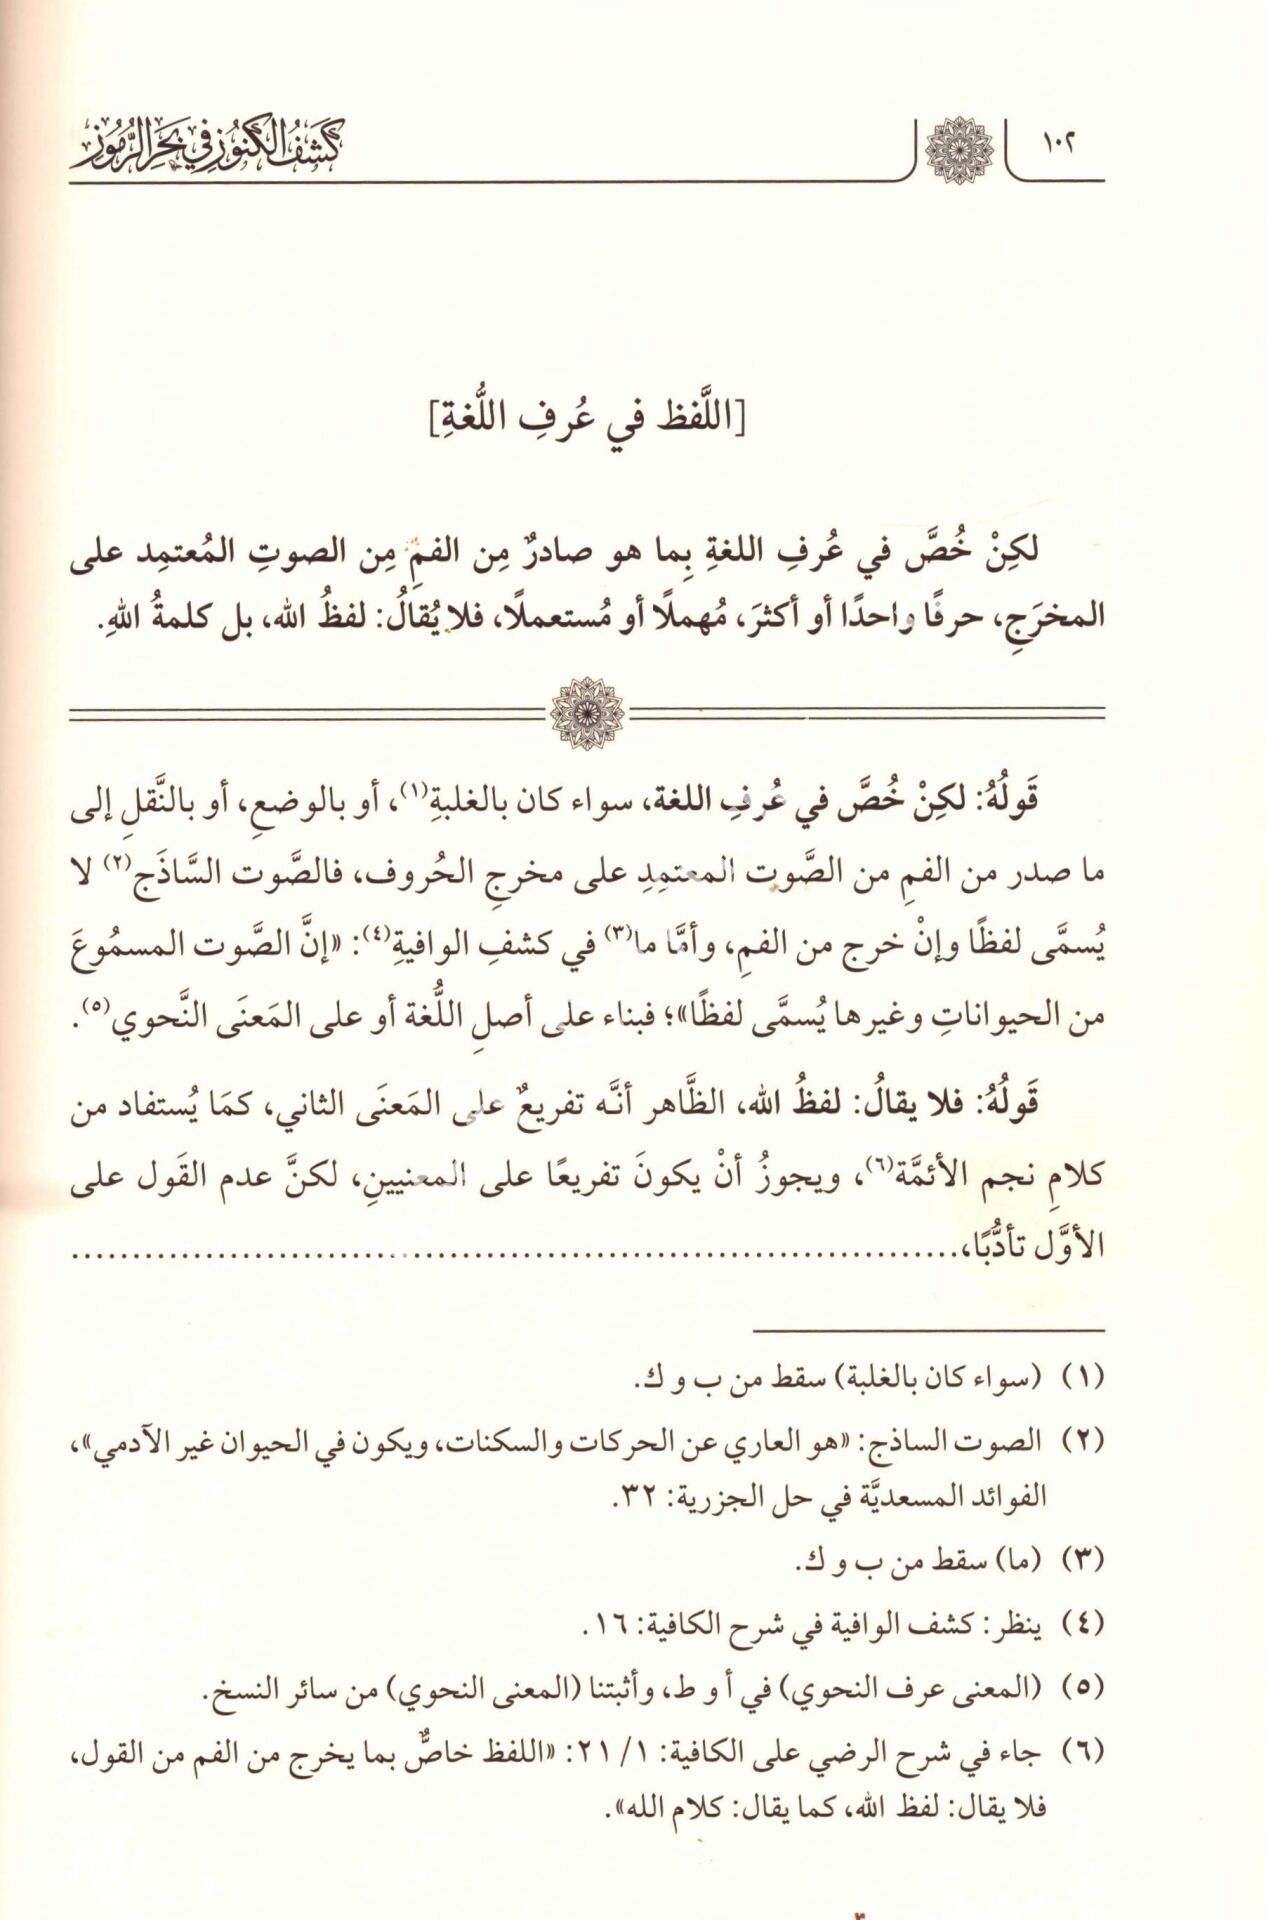 ١٠٢
كَشفُ الكُنُوز في بَحرِ الرُّمُوز
[اللَّفظ في عُرفِ اللُّغةِ]
لكِنْ خُصَّ في عُرفِ اللغةِ بِما هو صادرٌ مِن الفمِ مِن الصوتِ المُعتمِد على
المخرَجِ، حرفًا واحدًا أو أكثرَ، مُهملًا أو مُستعملًا، فلا يُقالُ: لفظُ الله، بل كلمةُ اللهِ.
قَولُهُ: لكِنْ خُصَّ في عُرفِ اللغة، سواء كان بالغلبةِ(١)، أو بالوضعِ، أو بالنَّقلِ إلى
ما صدر من الفمِ من الصَّوت المعتمِدِ على مخرجِ الحُروف، فالصَّوت السَّاذَج(٢) لا
يُسمَّى لفظًا وإنْ خرج من الفمِ، وأمَّا ما(٣) في كشفِ الوافيةِ(٤): «إنَّ الصَّوت المسمُوعَ
من الحيواناتِ وغيرها يُسمَّى لفظًا»؛ فبناء على أصلِ اللُّغة أو على المَعنَى النَّحوي(٥).
قَولُهُ: فلا يقالُ: لفظُ الله، الظَّاهر أنَّه تفريعٌ على المَعنَى الثاني، كمَا يُستفاد من
كلامِ نجم الأئمَّة(٦)، ويجوزُ أنْ يكونَ تفريعًا على المعنيينِ، لكنَّ عدم القَول على
الأوَّل تأدُّبًا،..........................................................................
(١) (سواء كان بالغلبة) سقط من ب و ك.
(٢) الصوت الساذج: «هو العاري عن الحركات والسكنات، ويكون في الحيوان غير الآدمي»،
الفوائد المسعديَّة في حل الجزرية: ٣٢.
(٣) (ما) سقط من ب و ك.
(٤) ينظر: كشف الوافية في شرح الكافية: ١٦.
(٥) (المعنى عرف النحوي) في أ و ط، وأثبتنا (المعنى النحوي) من سائر النسخ.
(٦) جاء في شرح الرضي على الكافية: ١/ ٢١: «اللفظ خاصٌّ بما يخرج من الفم من القول،
فلا يقال: لفظ الله، كما يقال: كلام الله».